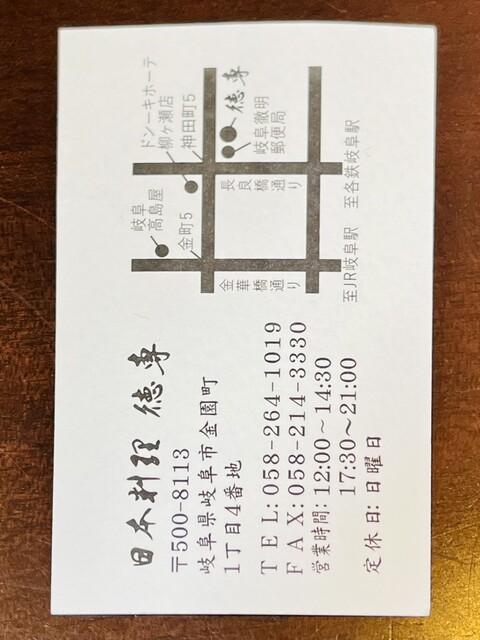 日本料理 德専
〒500-8113
岐阜県岐阜市金園町
1丁目4番地
TEL:058-264-1019
FAX:058-214-3330
営業時間:12:00~14:30
17:30~21:00
定休日:日曜日
ドン・キホーテ
柳ヶ瀬店
神田町5
德専
岐阜徹明
郵便局
岐阜
高島屋
金町5
長良橋通り
金華橋通り
至各鉄岐阜駅
至JR岐阜駅